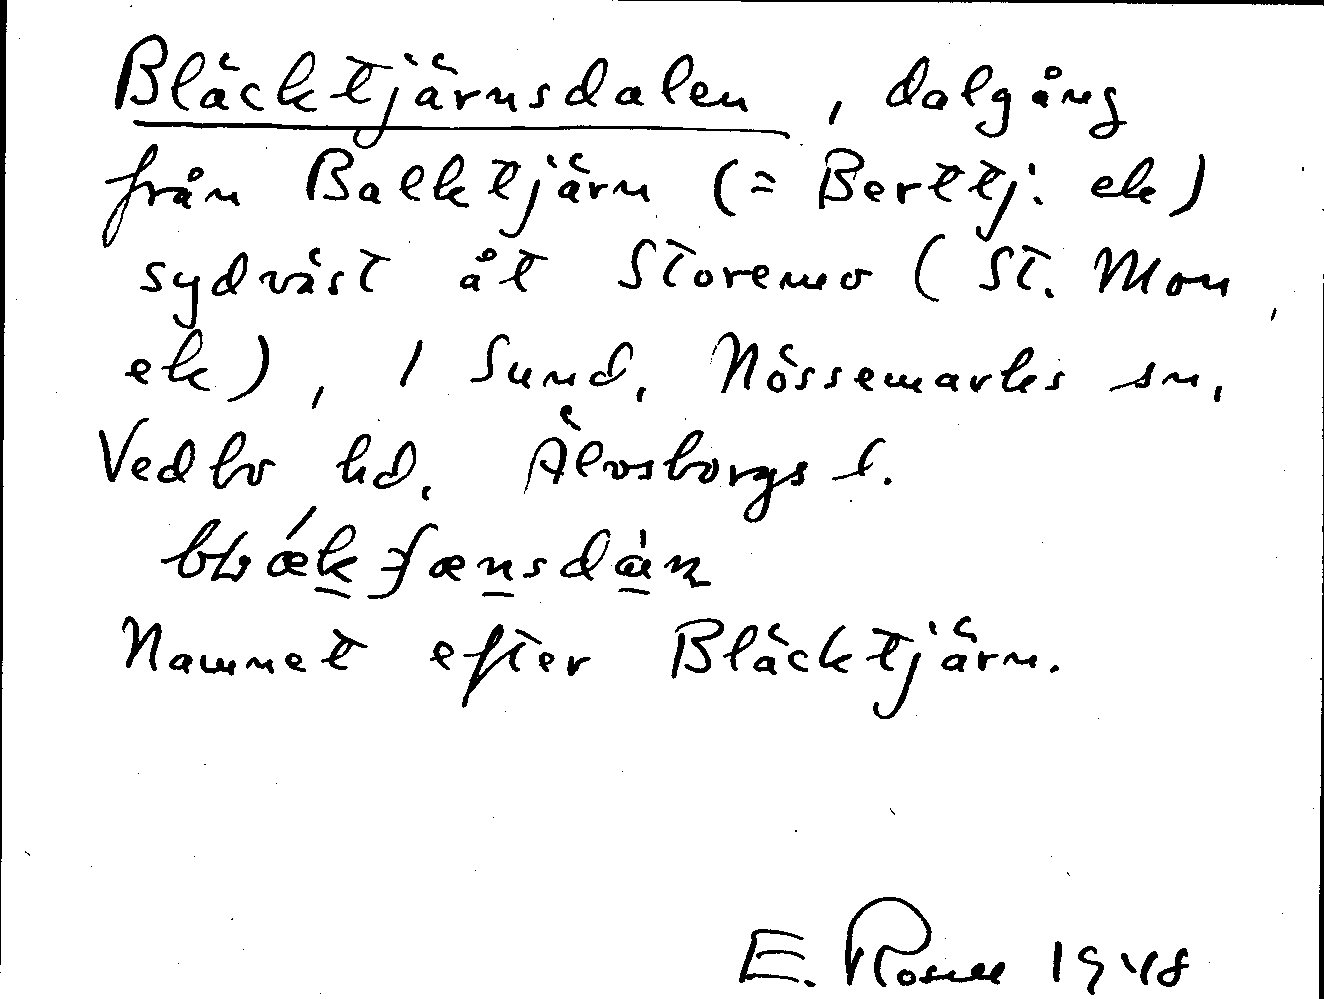 Bläcktjärnsdalen, dalgång
från Balktjärn (= Berttj. ek)
sydväst åt Storemo (St. Mon
ek), i Sund, Nössemarks sn,
Vedbo hd, Älvsborgs l.
Namnet efter Bläcktjärn.
E. Rosell 1948